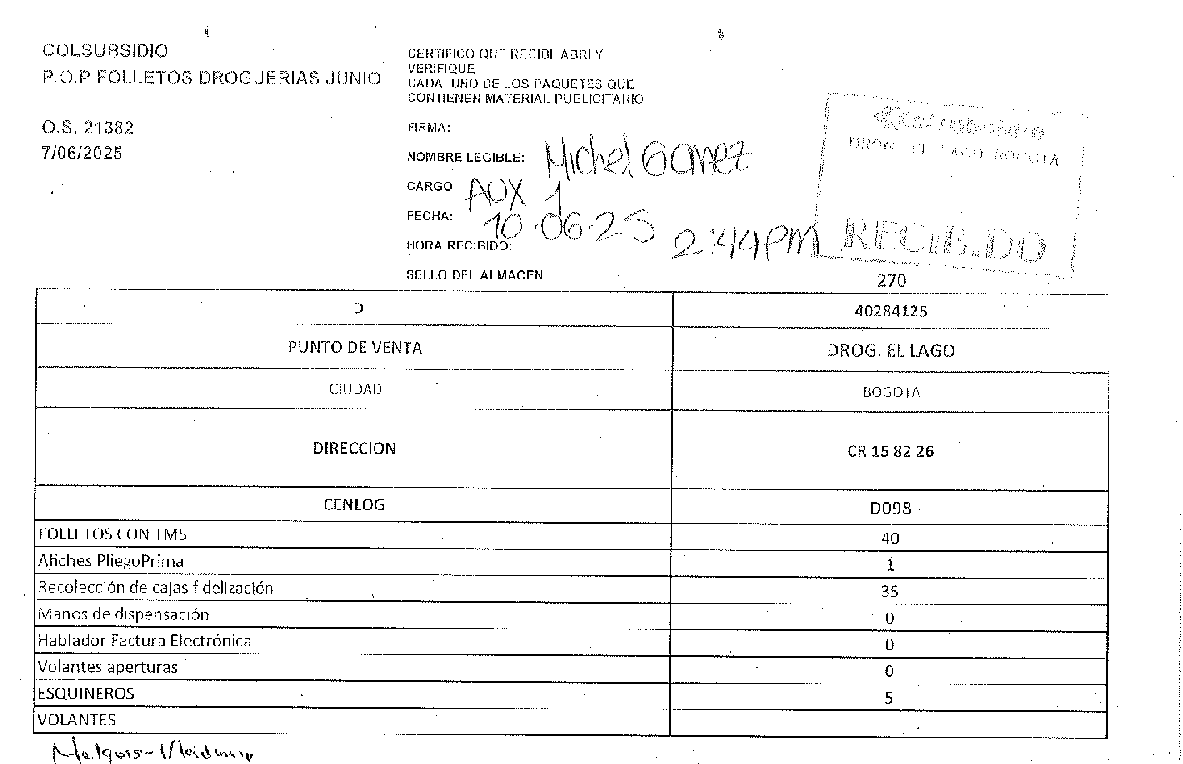 COLSUBSIDIO
P.O.P FOLLETOS DROGUERIAS JUNIO
O.S. 21382
7/06/2025
CERTIFICO QUE RECIBI ABRI Y
VERIFIQUE
CADA UNO DE LOS PAQUETES QUE
CONTIENEN MATERIAL PUBLICITARIO
FIRMA:
NOMBRE LEGIBLE: Michel Gomez
CARGO AUX 1
FECHA: 10-06-25
HORA RECIBIDO: 2:44PM
SELLO DEL ALMACEN
Colsubsidio
DROG. EL LAGO BOGOTA
RECIBIDO
270
D 40284125
PUNTO DE VENTA DROG. EL LAGO
CIUDAD BOGOTA
DIRECCION CR 15 82 26
CENLOG D098
FOLLETOS CON TMS 40
Afiches PliegoPrima 1
Recolección de cajas fidelización 35
Manos de dispensación 0
Hablador Factura Electrónica 0
Volantes aperturas 0
ESQUINEROS 5
VOLANTES